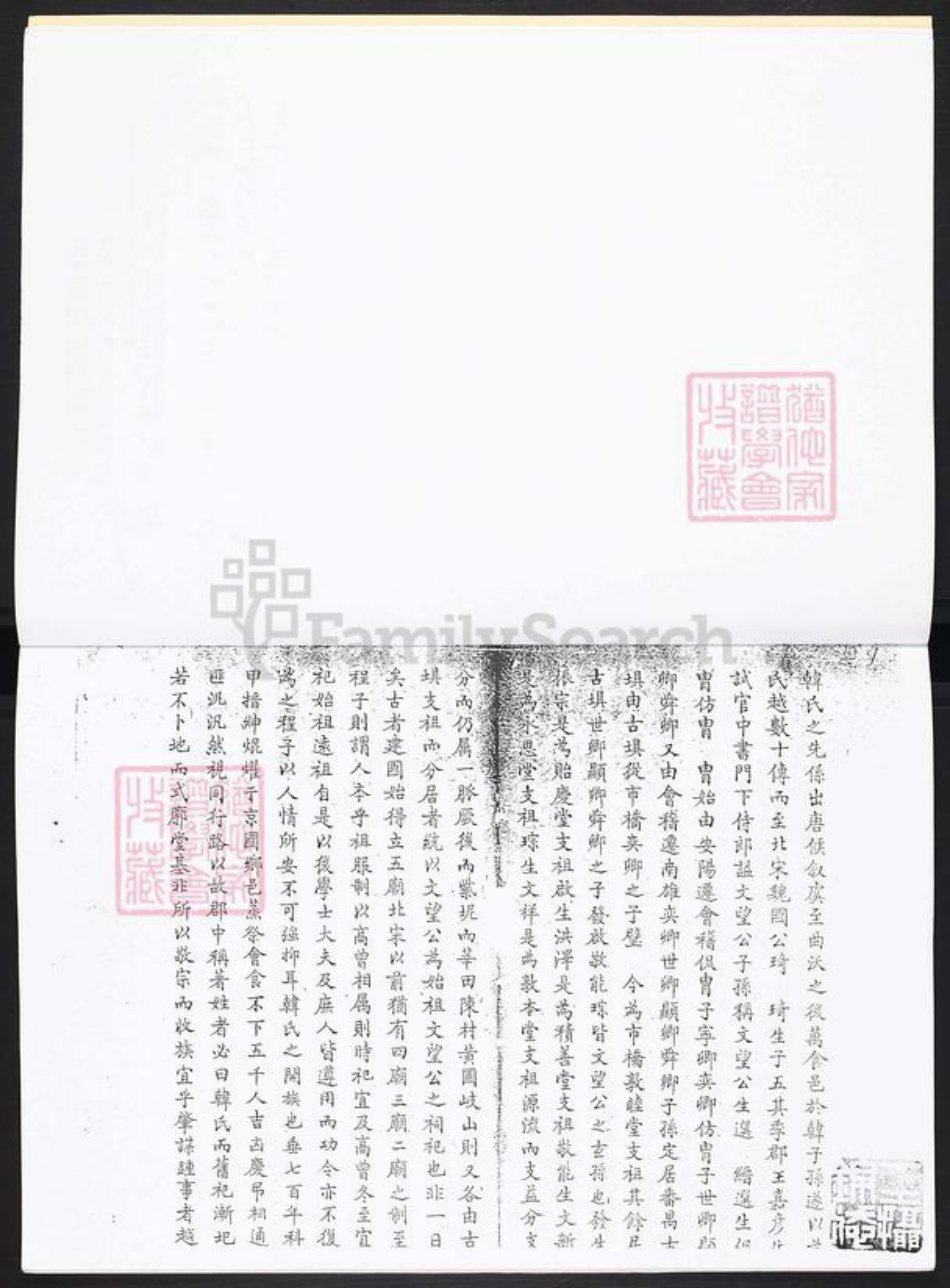 猶他家
譜學會
收藏
FamilySearch
韓氏之先係出唐侯叙虞至曲沃之後萬食邑於韓子孫遂以
氏越數十傳而至北宋魏國公琦 琦生子五其季郡王嘉彦
試官中書門下侍郎諡文望公子孫稱文望公生選 繕選生侃
冑仿冑 冑始由安陽遷會稽侃冑子寧卿奕卿仿冑子世卿顯
卿舜卿又由會稽遷南雄奕卿世卿顯卿舜卿子孫定居番禺古
埧由古埧從市橋奕卿之子璧 今為市橋敦睦堂支祖其餘
古埧世卿顯卿舜卿之子發啟敬能琮皆文望公之玄孫也發生
振宗是為貽慶堂支祖啟生洪澤是為積善堂支祖敬能生文新
是為永思堂支祖琮生文祥是為敦本堂支祖源流而支益分支
分而仍屬一脉厥後而紫坭而莘田陳村黄圃岐山則又各由古
埧支祖而分居者統以文望公為始祖文望公之祠祀也非一日
矣古者建國始得立五廟北宋以前猶有四廟三廟二廟之制至
程子則謂人本乎祖服制以高曾相属則時祀宜及高曾冬至宜
祀始祖遠祖自是以後學士大夫及庶人皆遵用而功令亦不復
為之程子以人情所安不可强抑耳韓氏之開族也垂七百年科
甲搢紳焜燿于京國鄉邑蒸祭會食不下五千人吉凶慶吊相通
匪洮汎然視同行路以故郡中稱著姓者必曰韓氏而舊祀漸圯
若不卜地而式廓堂基非所以敬宗而收族宜乎肇謀建事者越
猶他家
譜學會
收藏